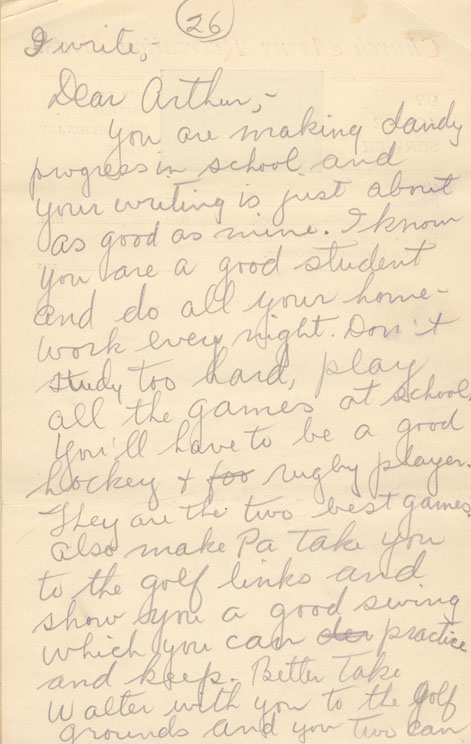 26
I write,
Dear Arthur,-
You are making dandy
progress in school and
your writing is just about
as good as mine. I know
you are a good student
and do all your home-
work every night. Don't
study too hard, play
all the games at school.
You'll have to be a good
hockey + foo rugby player.
They are the two best games
also make Pa take you
to the golf links and
show you a good swing
which you can practice
and keep. Better take
Walter with you to the golf
grounds and you two can